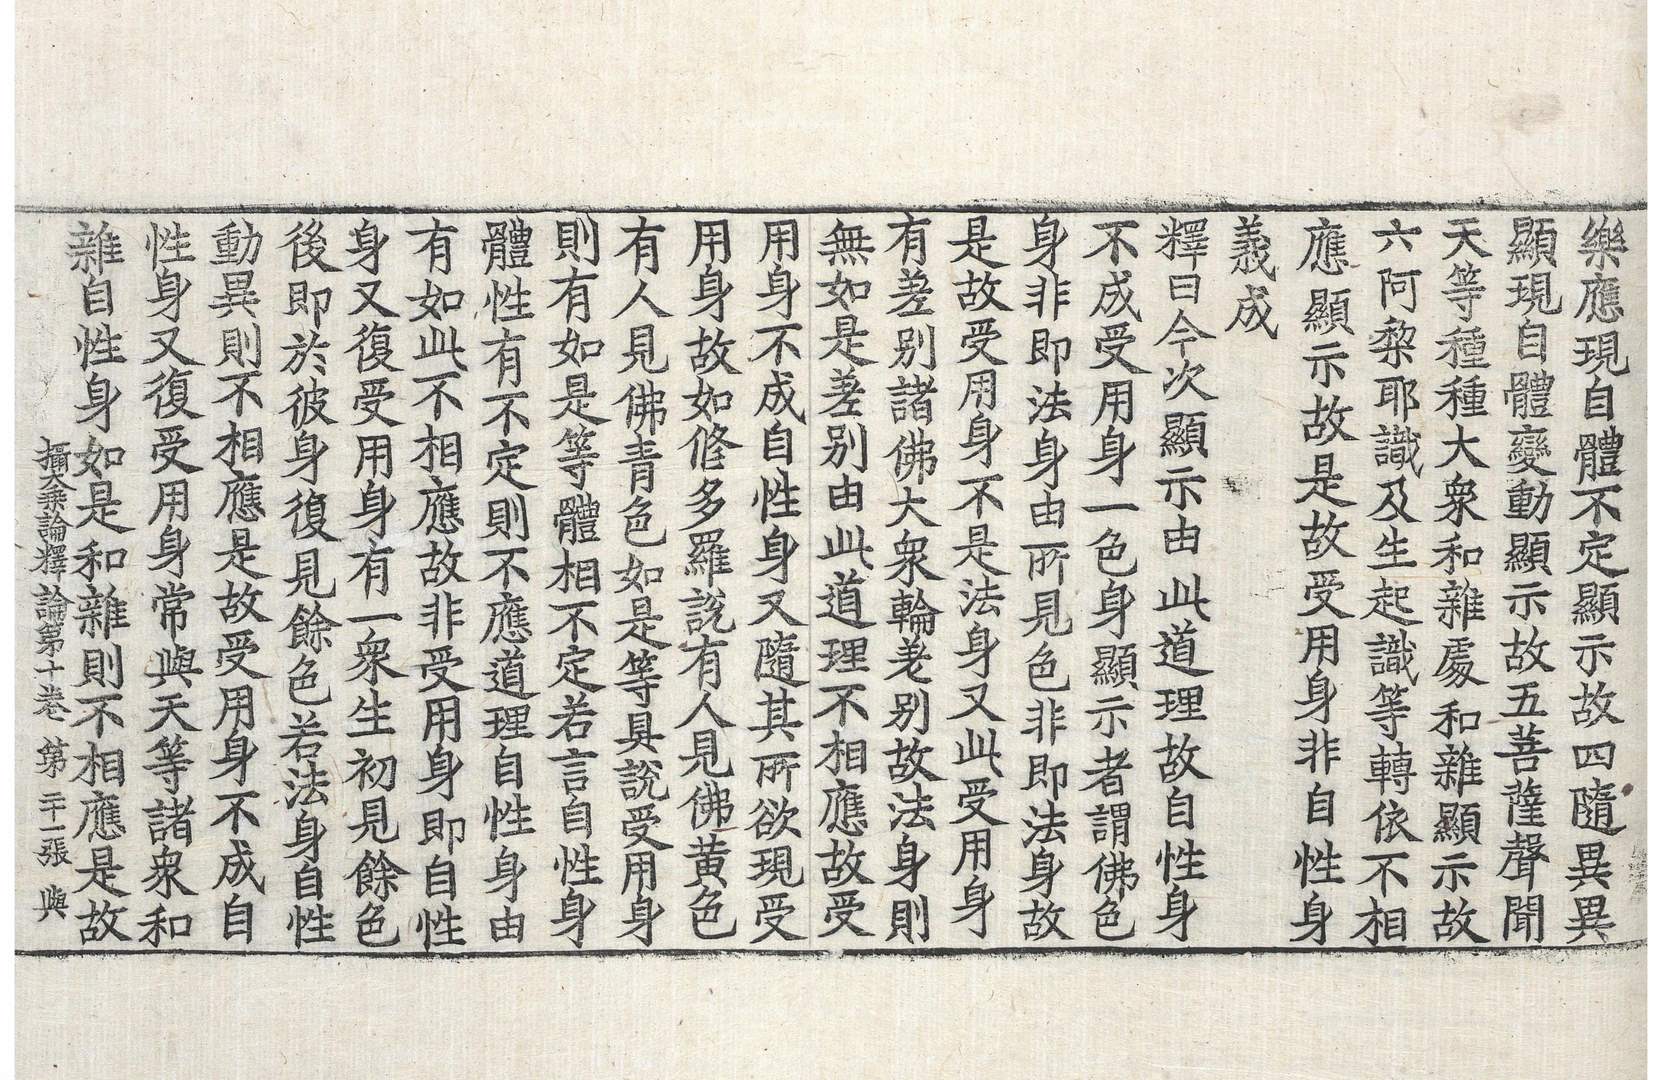 樂應現自體不定顯示故四隨異異
顯現自體變動顯示故五菩薩聲聞
天等種種大衆和雜處和雜顯示故
六阿黎耶識及生起識等轉依不相
應顯示故是故受用身非自性身
義成
釋曰今次顯示由此道理故自性身
不成受用身一色身顯示者謂佛色
身非即法身由所見色非即法身故
是故受用身不是法身又此受用身
有差別諸佛大衆輪差別故法身則
無如是差別由此道理不相應故受
用身不成自性身又隨其所欲現受
用身故如修多羅說有人見佛黄色
有人見佛青色如是等具說受用身
則有如是等體相不定若言自性身
體性有不定則不應道理自性身由
有如此不相應故非受用身即自性
身又復受用身有一衆生初見餘色
後即於彼身復見餘色若法身自性
動異則不相應是故受用身不成自
性身又復受用身常與天等諸衆和
雜自性身如是和雜則不相應是故
攝大乘論釋論第十卷 第二十一張 與